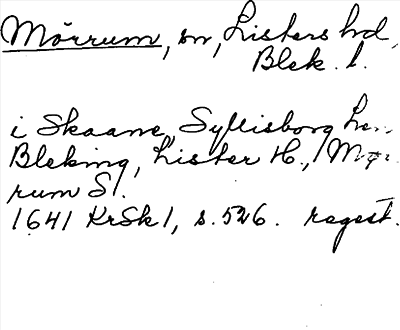 Mörrum, sn, Listers hd,
Blek. l.
i Skaane, Syllisborg Len
Bleking, Lister H., Mør-
rum S!.
1641 KrSk 1, s. 526. regest.